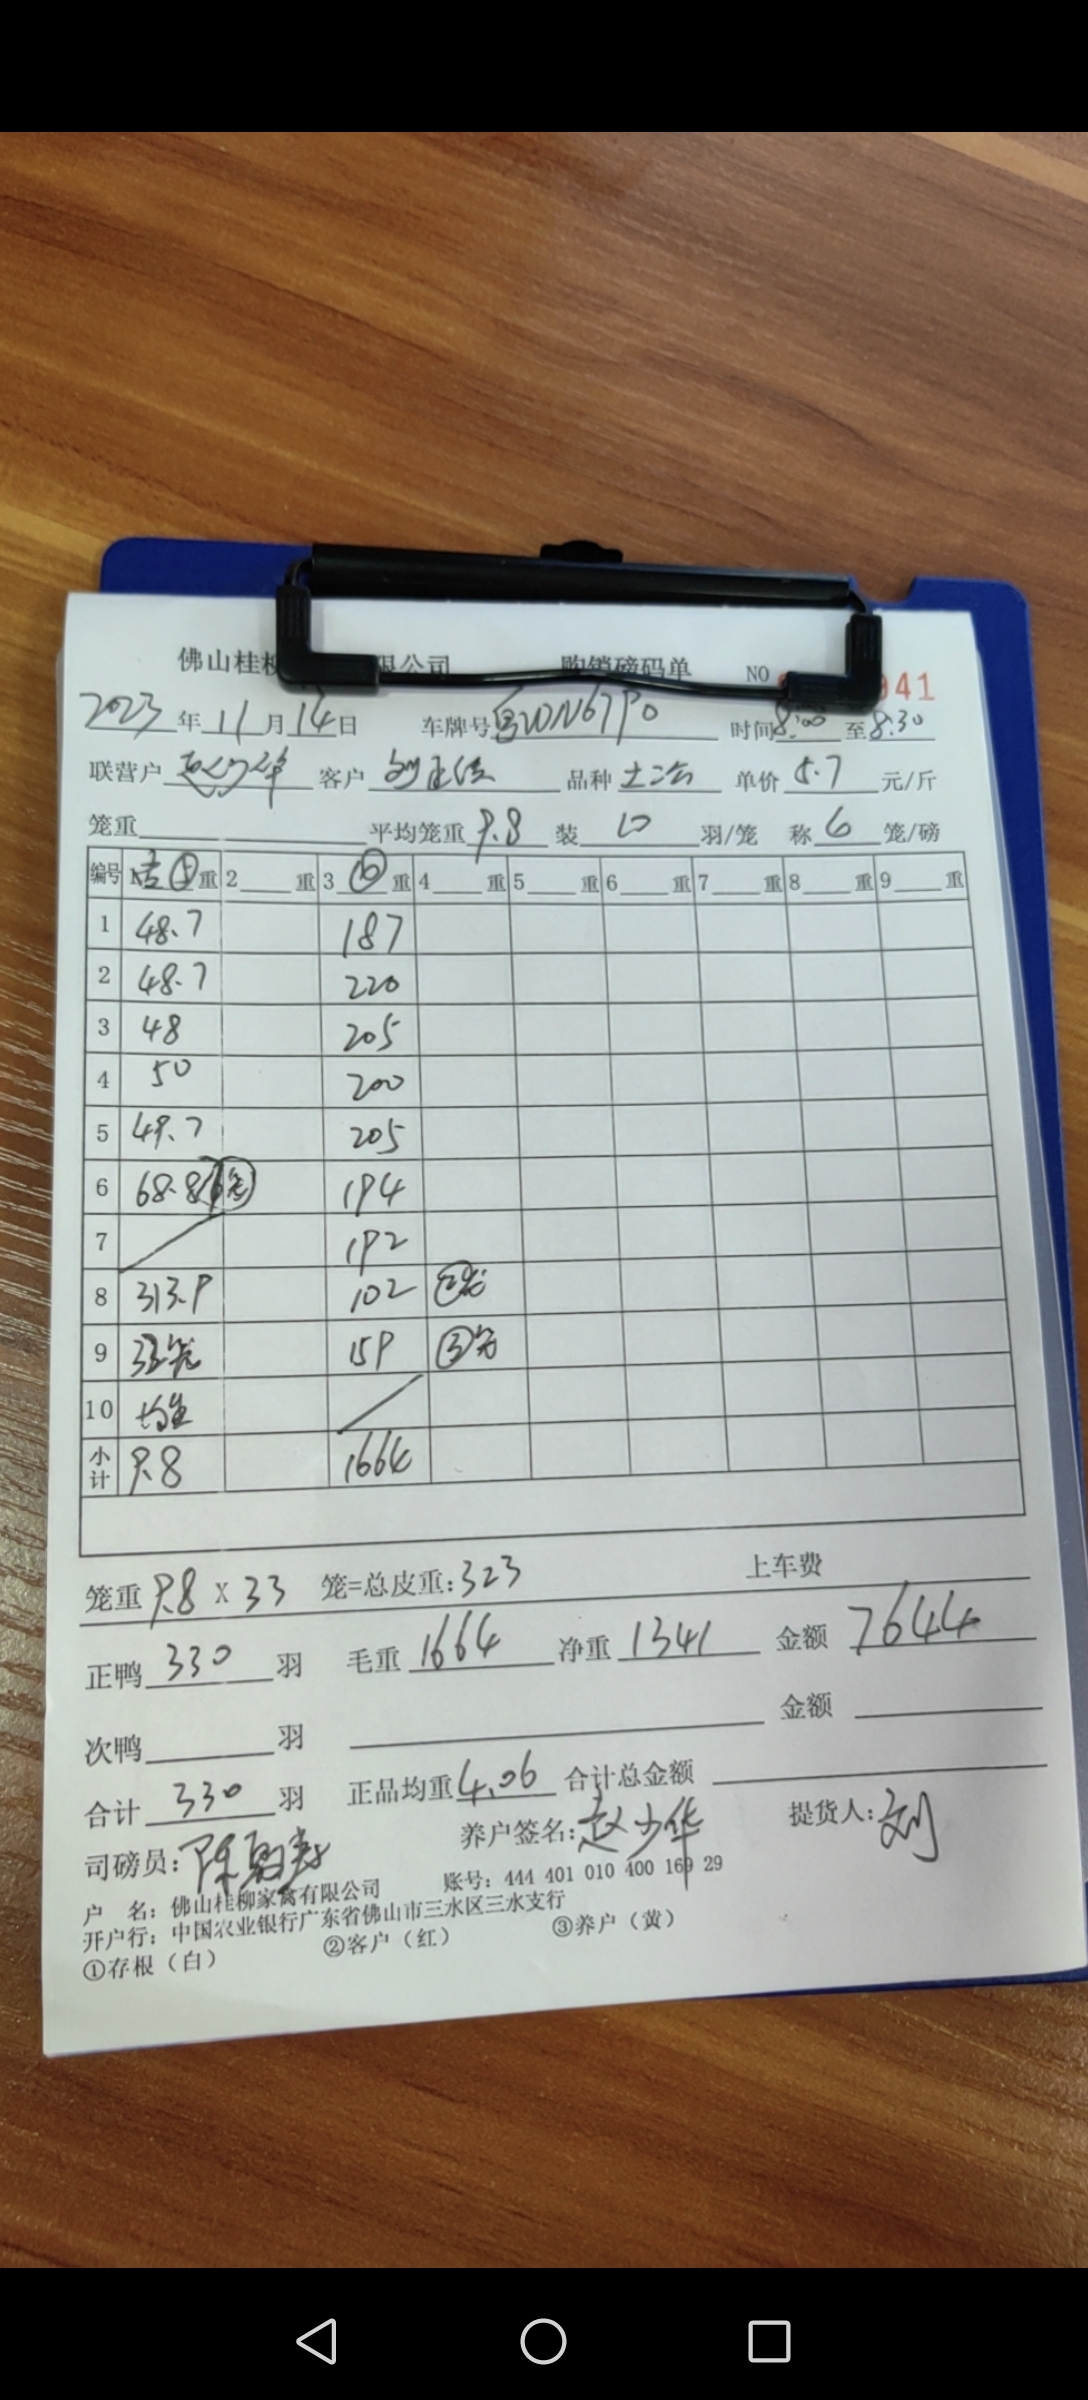 佛山桂柳 限公司 购销磅码单 NO 941
2023年11月14日 车牌号粤WN67P0 时间8:00至8:30
联营户赵少华 客户 品种土二 单价5.7元/斤
笼重 平均笼重9.8 装10羽/笼 称6笼/磅
编号 1 ⑤重 2 重 3 ⑥重 4 重 5 重 6 重 7 重 8 重 9 重
1 48.7 187
2 48.7 220
3 48 205
4 50 200
5 49.7 205
6 68.8 194
7 192
8 313.9 102 ②笼
9 33笼 159 ③笼
10 均重
小计 9.8 1664
笼重9.8 X 33 笼=总皮重:323 上车费
正鸭330羽 毛重1664 净重1341 金额7644
次鸭 羽 金额
合计330羽 正品均重4.06 合计总金额
司磅员: 养户签名:赵少华 提货人:刘
户 名: 佛山桂柳家禽有限公司 账号: 444 401 010 400 169 29
开户行: 中国农业银行广东省佛山市三水区三水支行
①存根（白） ②客户（红） ③养户（黄）